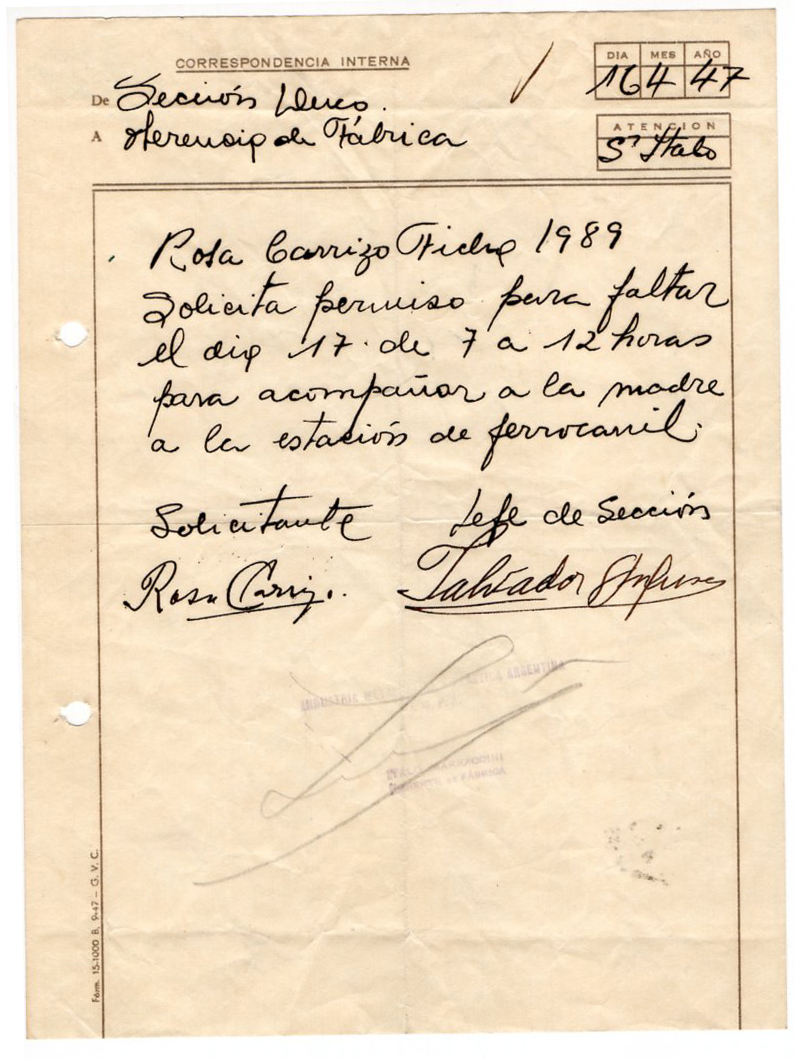 CORRESPONDENCIA INTERNA
DIA MES AÑO
16 4 47
De Sección
A Gerencia de Fábrica
ATENCION
Sr Italo
Rosa Carrizo Ficha 1989
Solicita permiso para faltar
el dia 17 de 7 a 12 horas
para acompañar a la madre
a la estación de ferrocarril.
Solicitante Jefe de Sección
Rosa Carrizo. Salvador
INDUSTRIA ARGENTINA
Form. 15-1000 B, 9-47 - G. V. C.